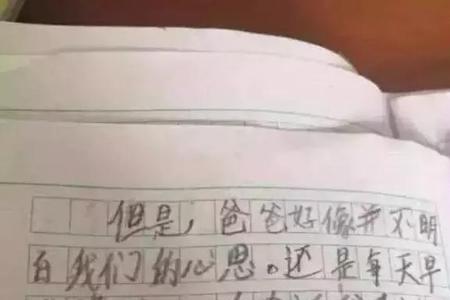 但是，爸爸好像并不明
白我们的心思。还是每天早